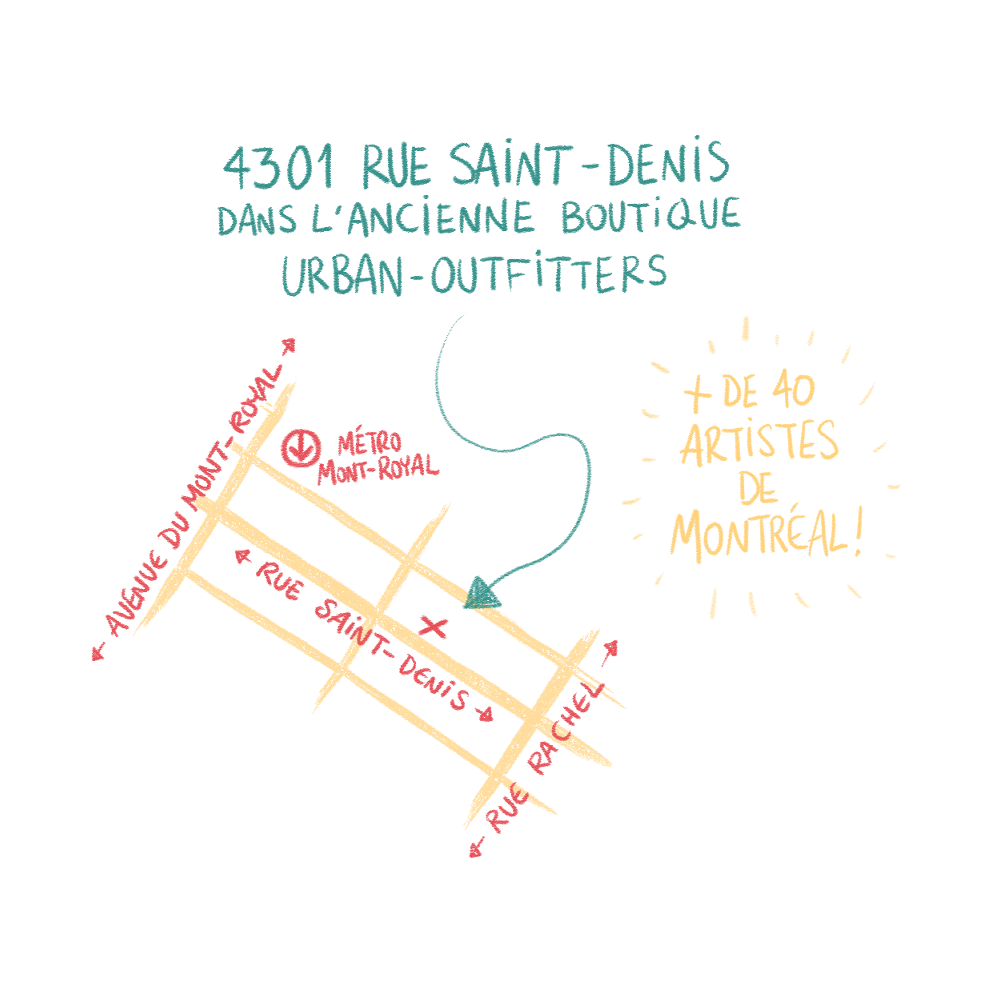 4301 RUE SAINT-DENIS
DANS L'ANCIENNE BOUTIQUE
URBAN-OUTFITTERS
+ DE 40
ARTISTES
DE
MONTRÉAL!
MÉTRO
MONT-ROYAL
AVENUE DU MONT-ROYAL
RUE SAINT-DENIS
RUE RACHEL